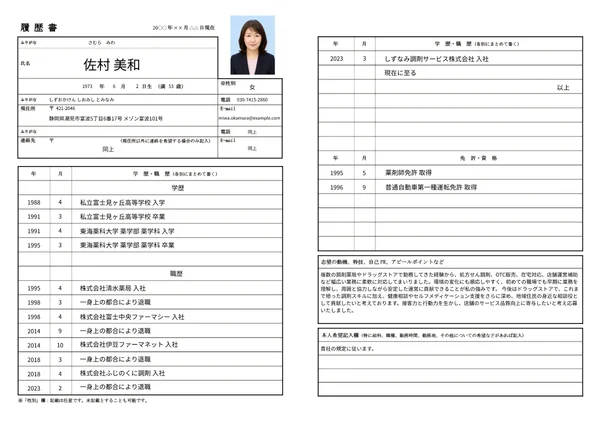 履 歴 書
20○○ 年 ×× 月 △△ 日現在
ふりがな さむら みわ
氏名 佐村 美和
1973 年 6 月 2 日生 (満 53 歳)
※性別 女
ふりがな しずおかけん しおみし とみなみ
電話 030-7415-2860
現住所 〒 421-2046
静岡県潮見市富波5丁目6番17号 メゾン富波101号
E-mail
miwa.okamura@example.com
ふりがな
電話 同上
連絡先 〒 (現住所以外に連絡を希望する場合のみ記入)
同上
E-mail
同上
年 月 学 歴・職 歴 (各別にまとめて書く)
学歴
1988 4 私立富士見ヶ丘高等学校 入学
1991 3 私立富士見ヶ丘高等学校 卒業
1991 4 東海薬科大学 薬学部 薬学科 入学
1995 3 東海薬科大学 薬学部 薬学科 卒業
職歴
1995 4 株式会社清水薬局 入社
1998 3 一身上の都合により退職
1998 4 株式会社富士中央ファーマシー 入社
2014 9 一身上の都合により退職
2014 10 株式会社伊豆ファーマネット 入社
2018 3 一身上の都合により退職
2018 4 株式会社ふじのくに調剤 入社
2023 2 一身上の都合により退職
※「性別」欄：記載は任意です。未記載とすることも可能です。
年 月 学 歴・職 歴 (各別にまとめて書く)
2023 3 しずなみ調剤サービス株式会社 入社
現在に至る
以上
年 月 免 許・資 格
1995 5 薬剤師免許 取得
1996 9 普通自動車第一種運転免許 取得
志望の動機、特技、自己PR、アピールポイントなど
複数の調剤薬局やドラッグストアで勤務してきた経験から、処方せん調剤、OTC販売、在宅対応、店舗運営補助
など幅広い業務に柔軟に対応してまいりました。環境の変化にも順応しやすく、初めての職場でも早期に業務を
理解し、周囲と協力しながら安定した運営に貢献できることが私の強みです。今後はドラッグストアで、これま
で培った調剤スキルに加え、健康相談やセルフメディケーション支援をさらに深め、地域住民の身近な相談役と
して貢献したいと考えております。接客力と行動力を生かし、店舗のサービス品質向上に寄与したいと考え応募
いたしました。
本人希望記入欄 (特に給料、職種、勤務時間、勤務地、その他についての希望などがあれば記入)
貴社の規定に従います。